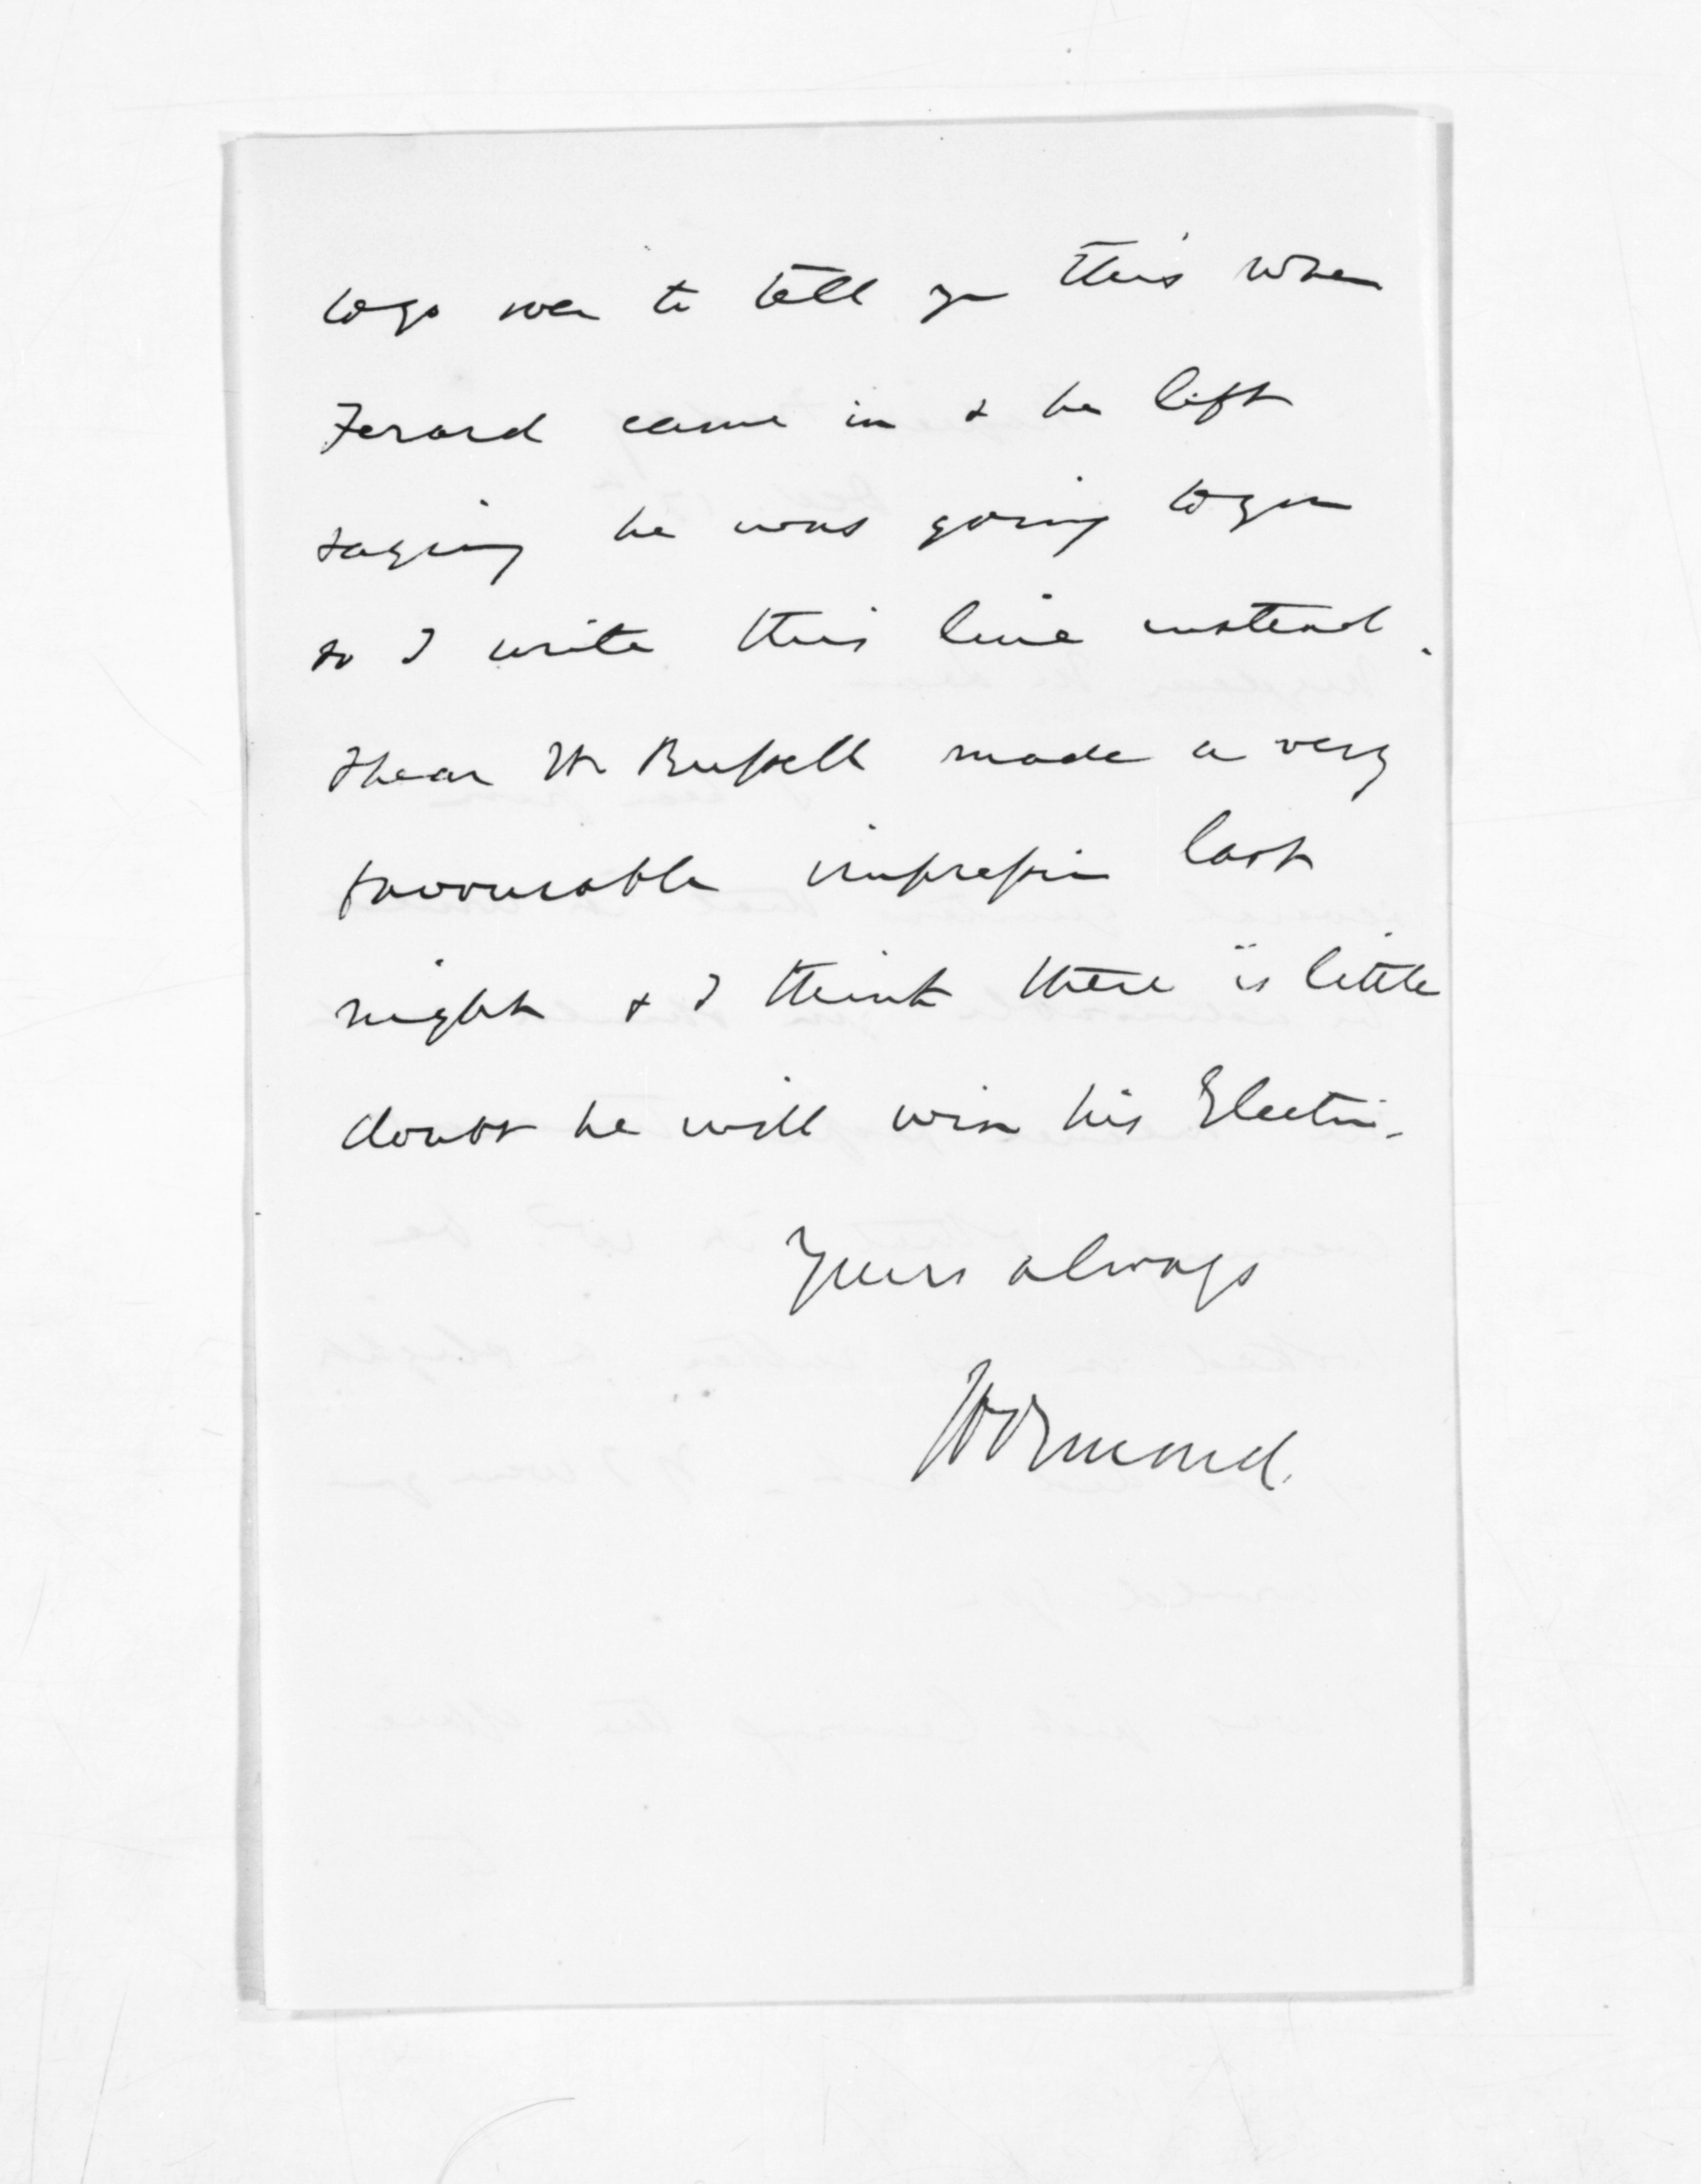 to go over to tell you this when
Ferard came in & he left
saying he was going to you
so I write this line instead.
I hear Mr Russell made a very
favourable impression last
night & I think there is little
doubt he will win his Election.
Yours always
JD Ormond.